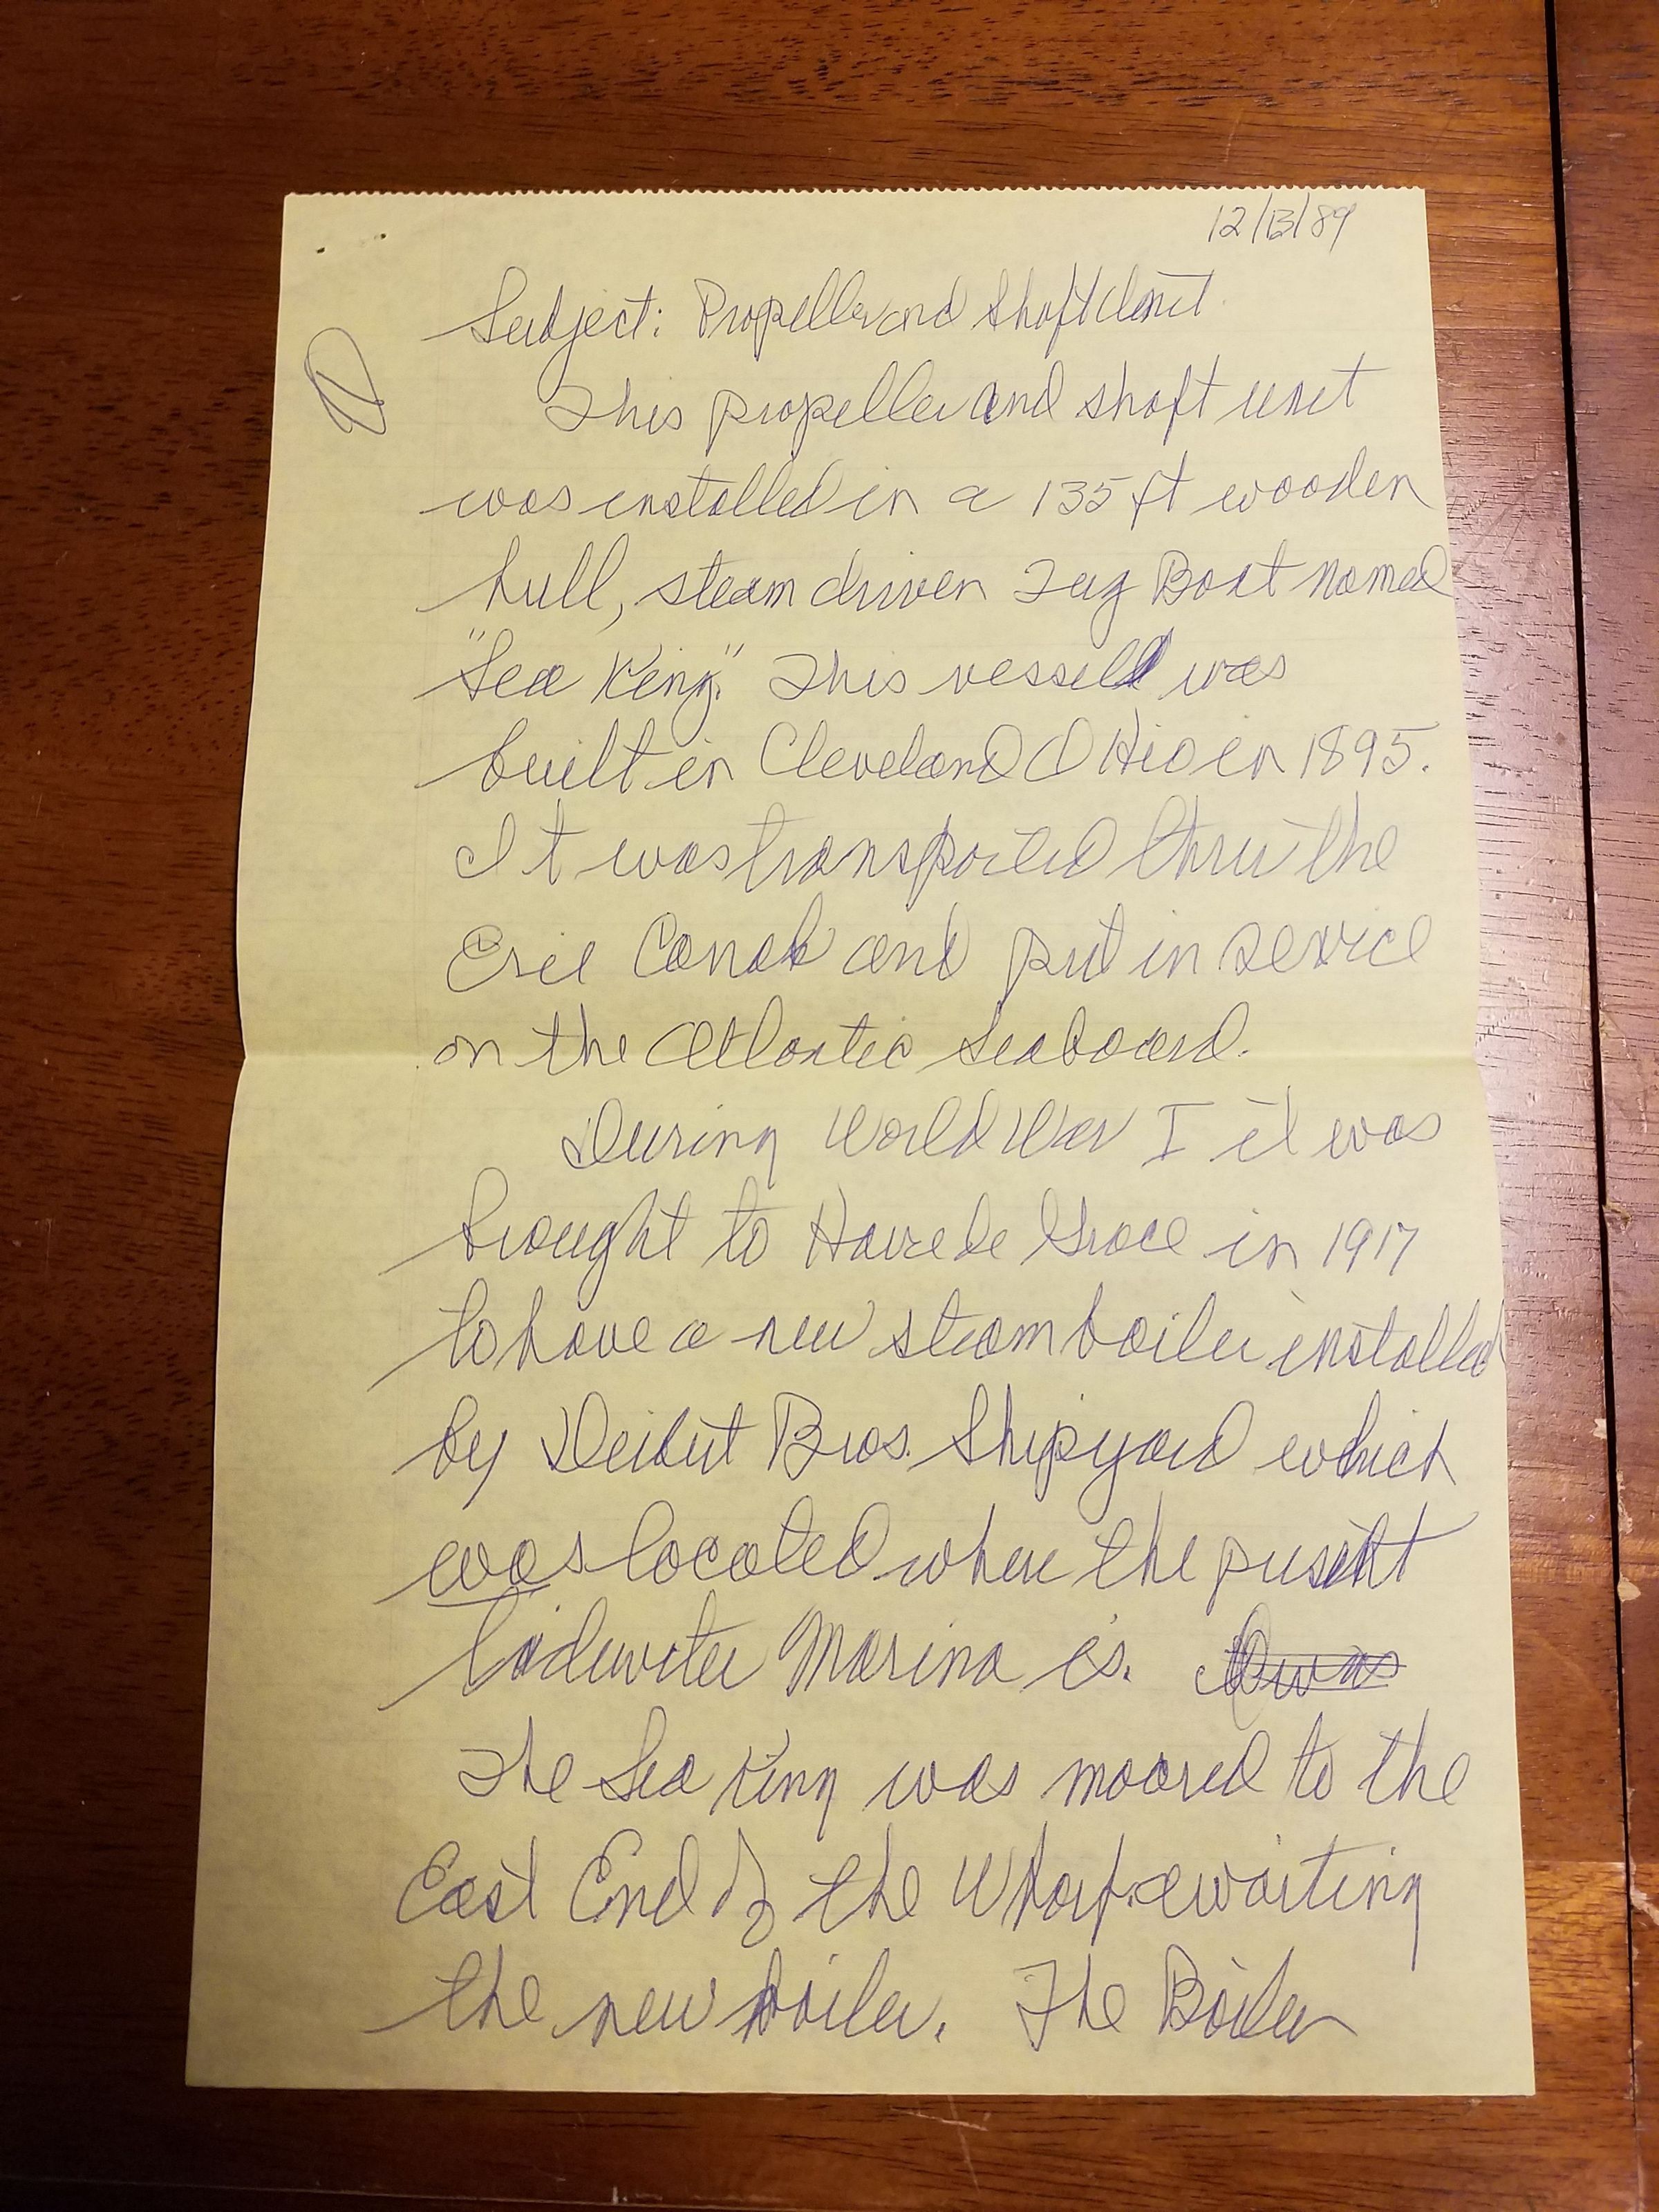 12/13/89
Subject: Propeller and Shaft Unit
This propeller and shaft unit
was installed in a 135 ft wooden
hull, steam driven Tug Boat named
"Sea King." This vessell was
built in Cleveland OHio in 1895.
It was transported thru the
Erie Canal and put in service
on the Atlantic Seaboard.
During World War I it was
brought to Havre de Grace in 1917
to have a new steam boiler installed
by Deibert Bros. Shipyard which
was located where the present
Tidewater Marina is.
The Sea King was moored to the
East End of the Wharf awaiting
the new boiler. The Boiler